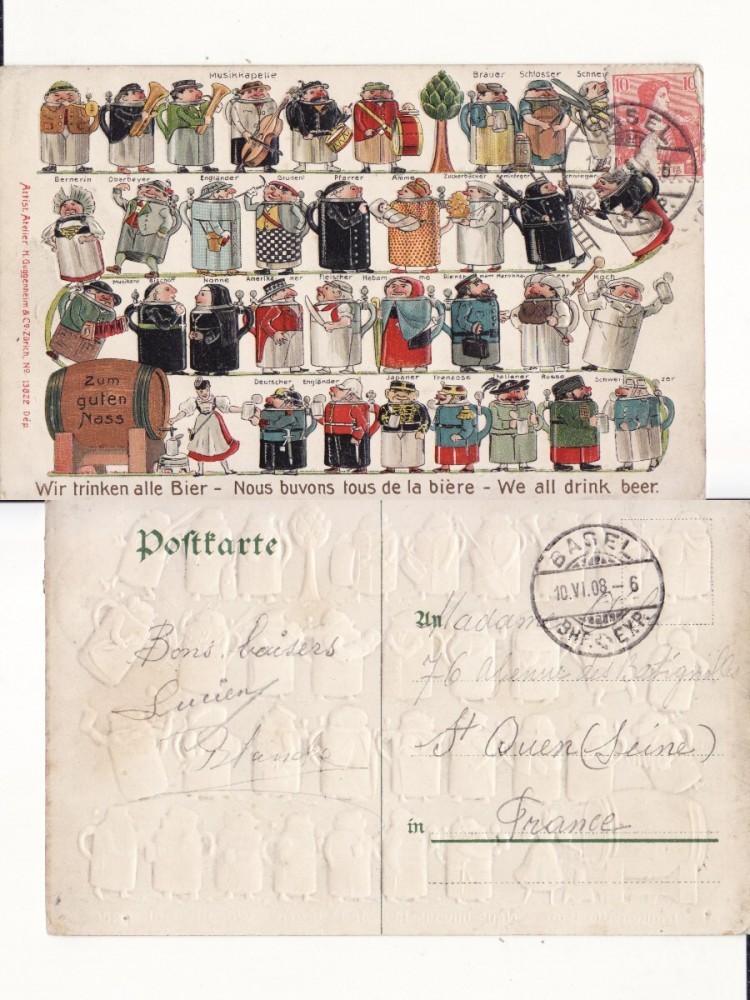 Musikkapelle
Brauer Schlosser
10 10
BASEL
Bernerin Oberbayer Engländer Pfarrer Amme Zuckerbäcker
Artist. Atelier H. Guggenheim & Co. Zürich. No. 13022 Dép.
Musikant Bischof Nonne Amerika ner Fleischer Hebam me Koch
Zum
guten
Nass
Deutscher Engländer Japaner Franzose Italiener Russe Schwei zer
Wir trinken alle Bier - Nous buvons tous de la bière - We all drink beer.
Postkarte
BASEL
10.VI.08.-6
BHF. EXP.
Bons baisers
Lucien
An Madame
76 Avenue des Batignolles
St Ouen (Seine)
in France